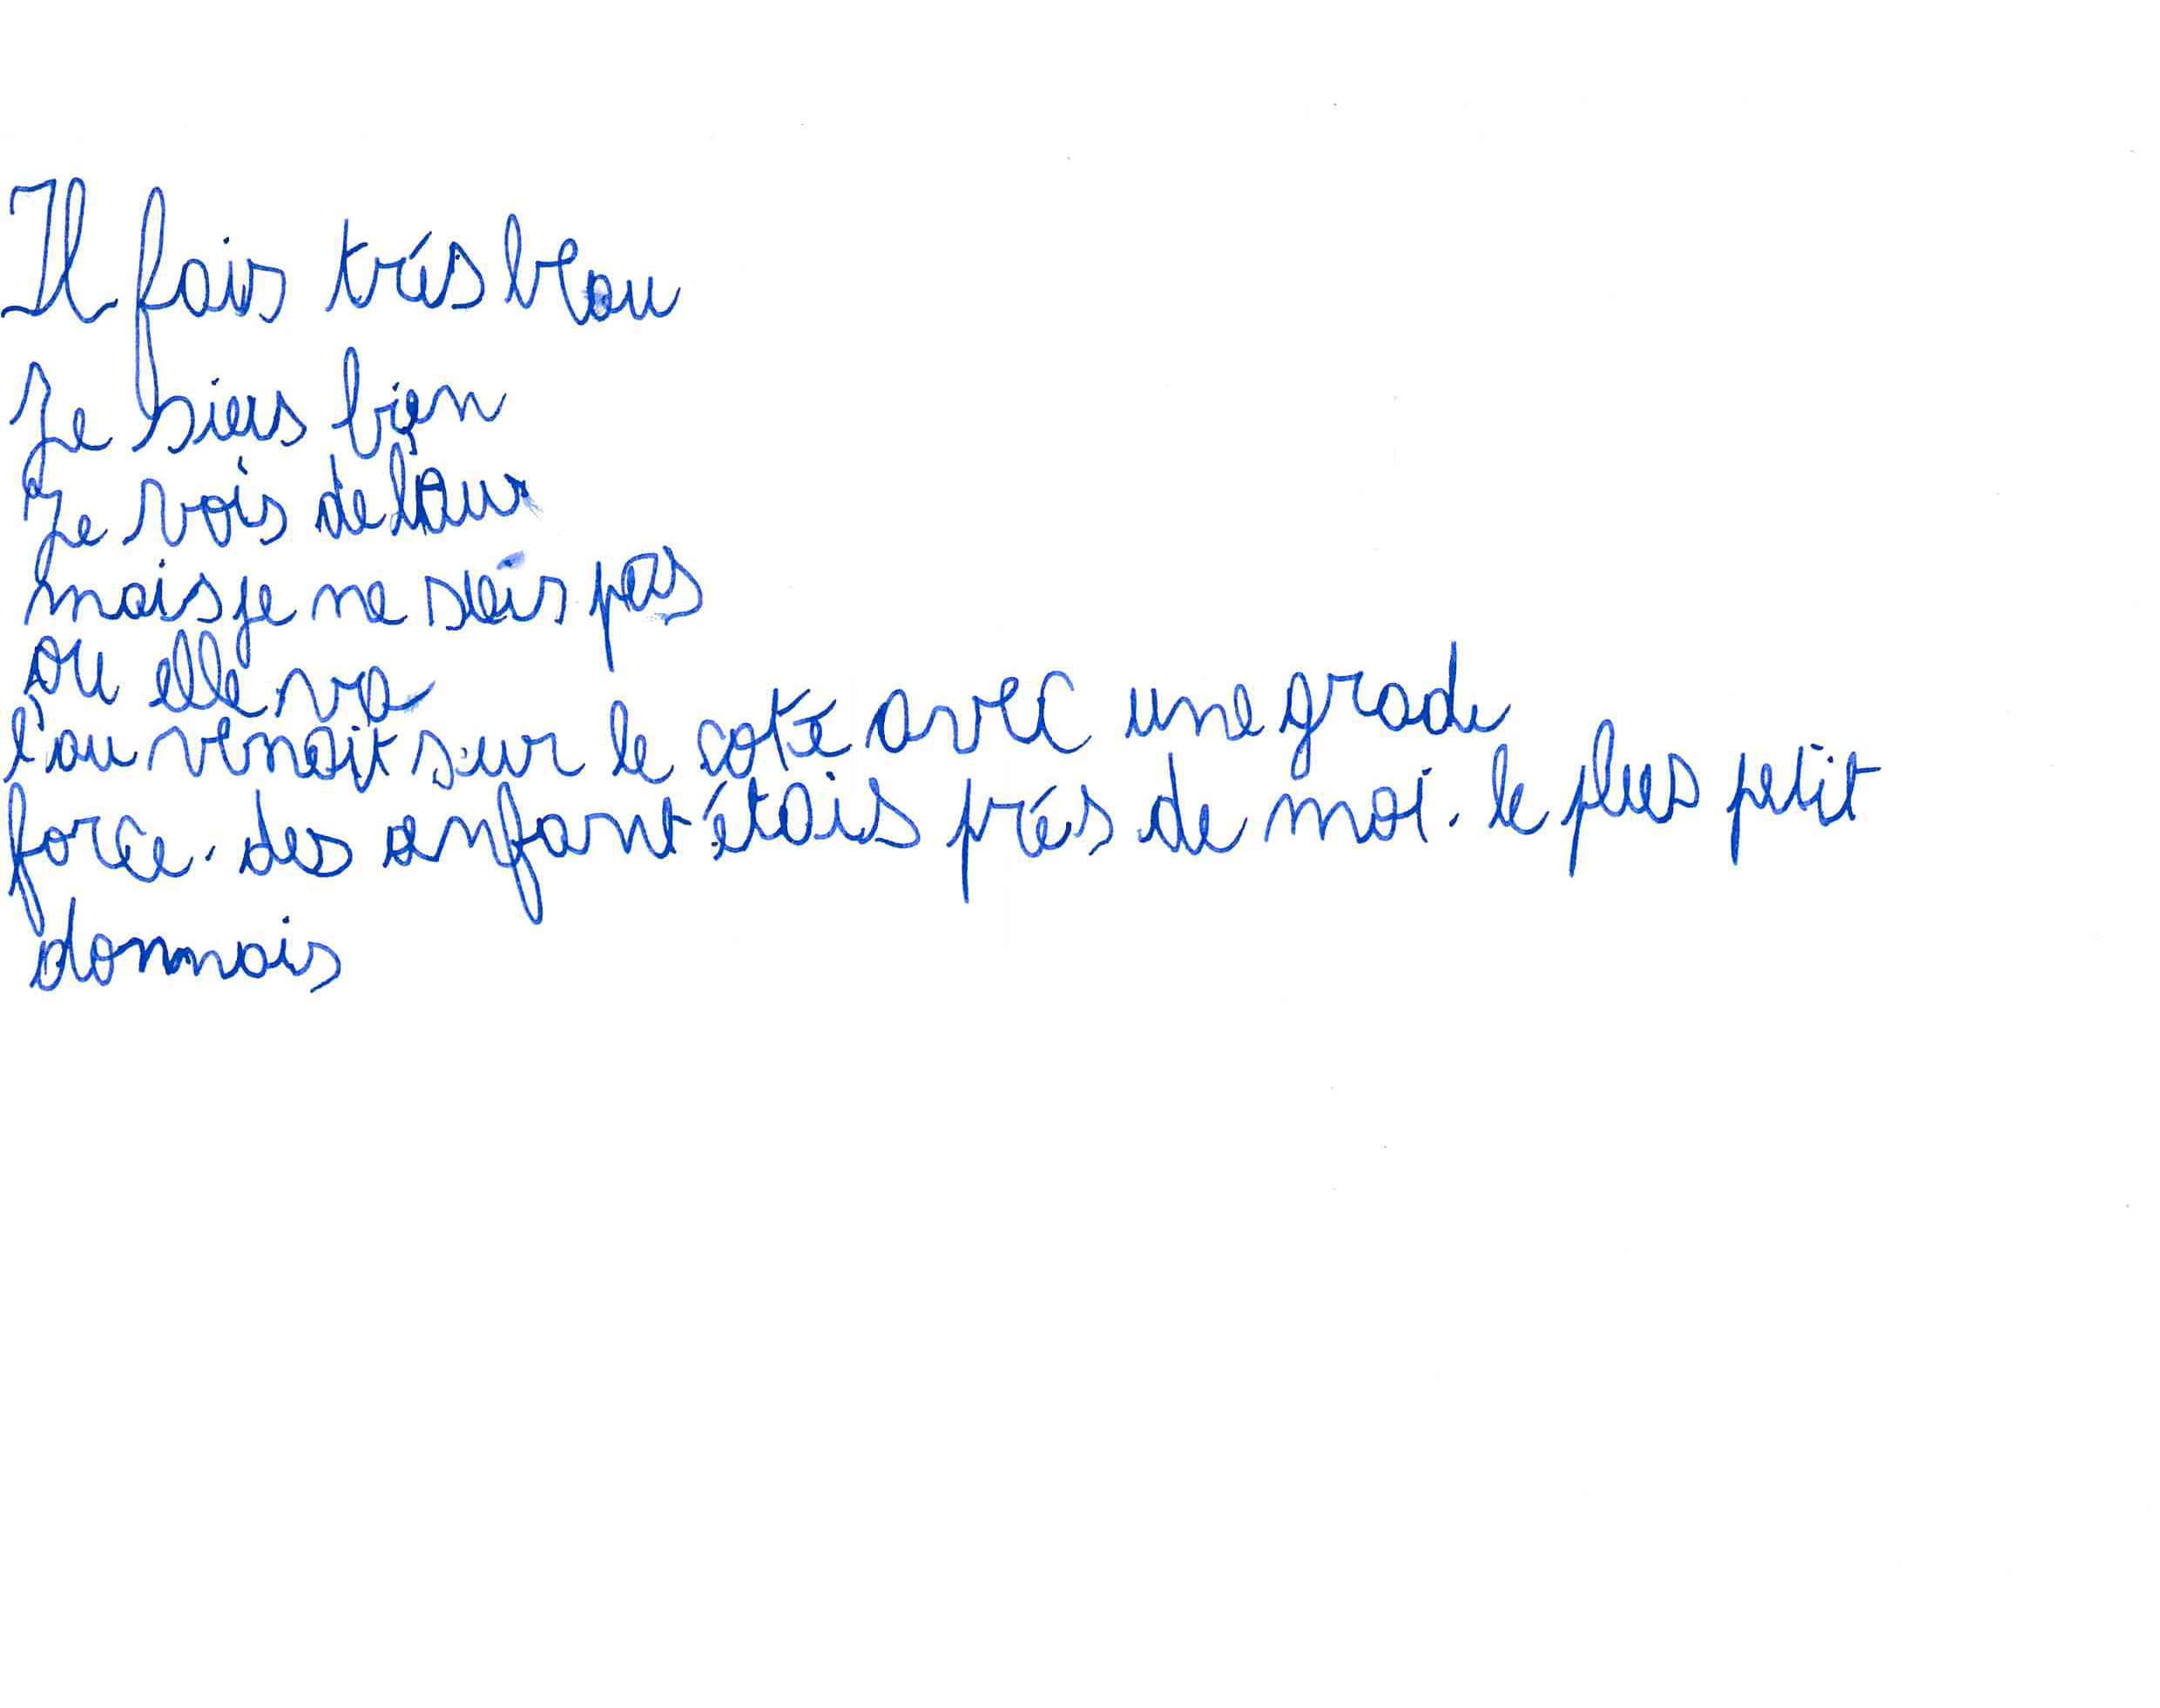 Il fais trés beau
Je siens bien
Je vois de l'au
mais je ne sais pas
ou elle va
l'au venait sur le coté avec une grade
force. des enfant étais prés de moi. le plus petit
donmais